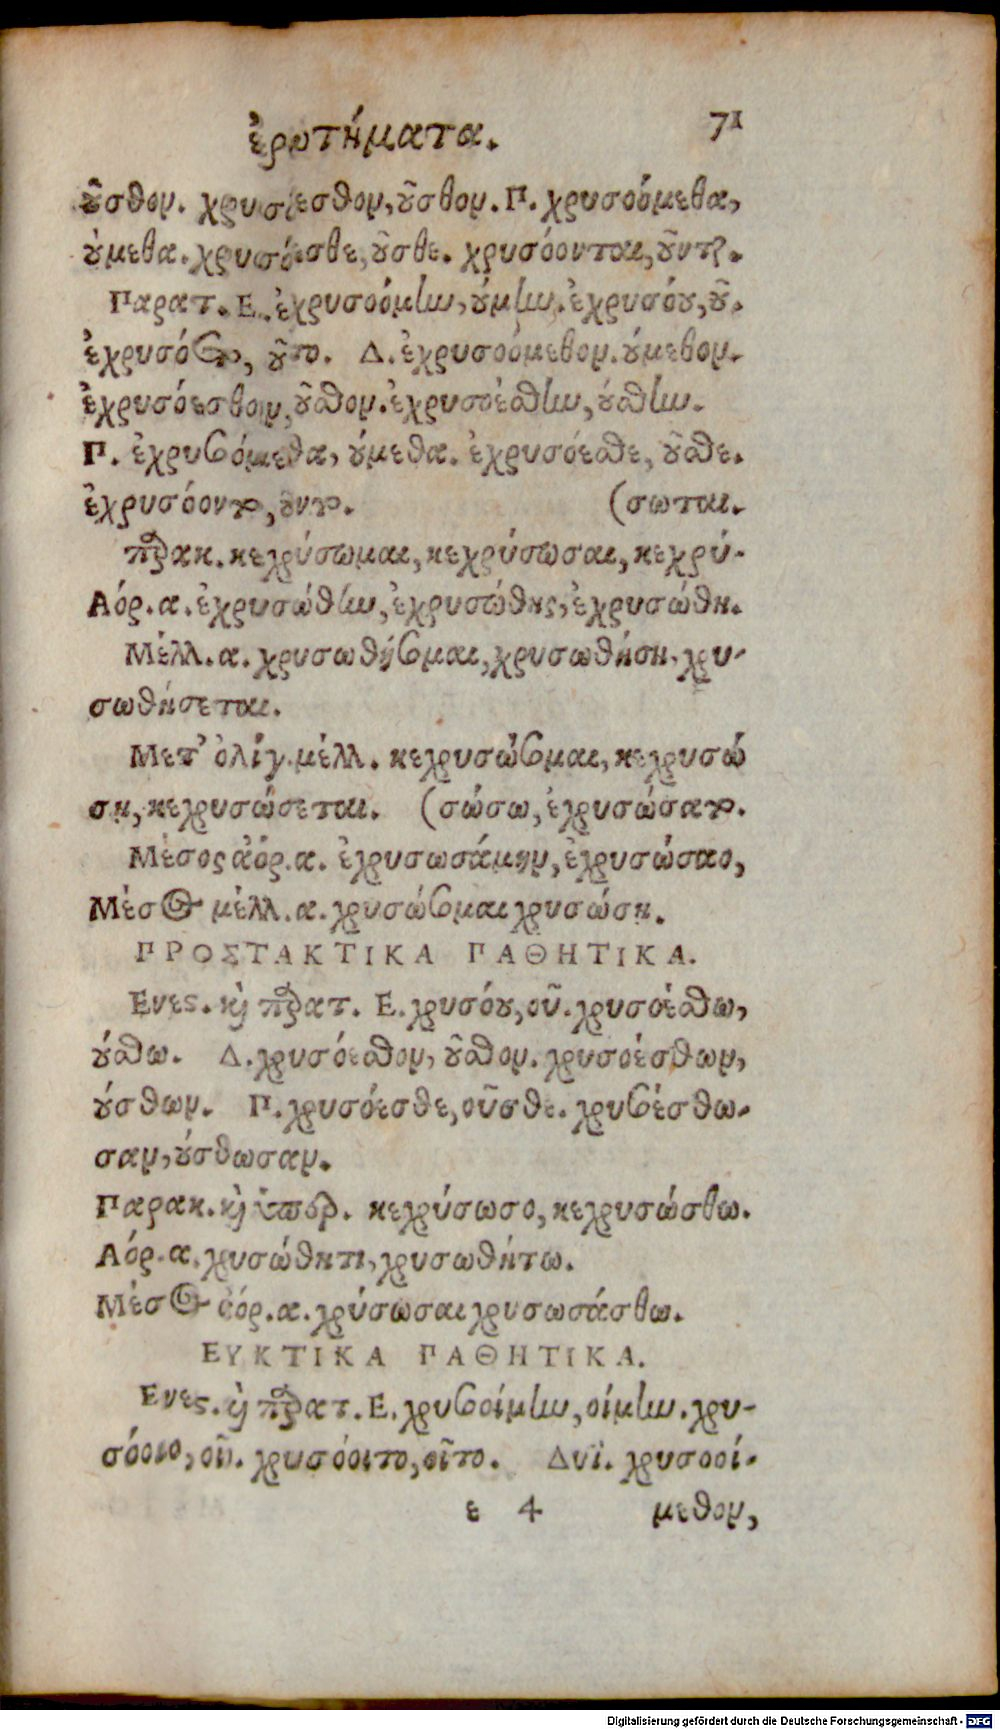 ἐρωτήματα. 71
οῦσθον. χρυσόεσθον, οῦσθον. Π. χρυσοόμεθα,
ούμεθα. χρυσόεσθε, οῦσθε. χρυσόονται, οῦνται.
Παρατ. Ε. ἐχρυσοόμην, ούμην. ἐχρυσόου, οῦ.
ἐχρυσόετο, οῦτο. Δ. ἐχρυσοόμεθον. ούμεθον.
ἐχρυσόεσθον, οῦσθον. ἐχρυσοέσθην, ούσθην.
Π. ἐχρυσοόμεθα, ούμεθα. ἐχρυσόεσθε, οῦσθε.
ἐχρυσόοντο, οῦντο. (σωται.
παρακ. κεχρύσωμαι, κεχρύσωσαι, κεχρύ-
Αόρ. α. ἐχρυσώθην, ἐχρυσώθης, ἐχρυσώθη.
Μέλλ. α. χρυσωθήσομαι, χρυσωθήση, χρυ-
σωθήσεται.
Μετ' ὀλίγ. μέλλ. κεχρυσώσομαι, κεχρυσώ
ση, κεχρυσώσεται. (σώσω, ἐχρυσώσατο.
Μέσος ἀόρ. α. ἐχρυσωσάμην, ἐχρυσώσαο,
Μέσος μέλλ. α. χρυσώσομαι χρυσώση.
ΠΡΟΣΤΑΚΤΙΚΑ ΠΑΘΗΤΙΚΑ.
Ενεσ. καὶ παρατ. Ε. χρυσόου, οῦ. χρυσοέσθω,
ούσθω. Δ. χρυσόεσθον, οῦσθον. χρυσοέσθων,
ούσθων. Π. χρυσόεσθε, οῦσθε. χρυσοέσθω-
σαν, ούσθωσαν.
Παρακ. καὶ ὑπερ. κεχρύσωσο, κεχρυσώσθω.
Αόρ. α. χρυσώθητι, χρυσωθήτω.
Μέσος ἀόρ. α. χρύσωσαι χρυσωσάσθω.
ΕΥΚΤΙΚΑ ΠΑΘΗΤΙΚΑ.
Ενεσ. καὶ παρατ. Ε. χρυσοοίμην, οίμην. χρυ-
σόοιο, οῖο. χρυσόοιτο, οῖτο. Δυϊ. χρυσοοί-
ε 4 μεθον,
Digitalisierung gefördert durch die Deutsche Forschungsgemeinschaft - DFG